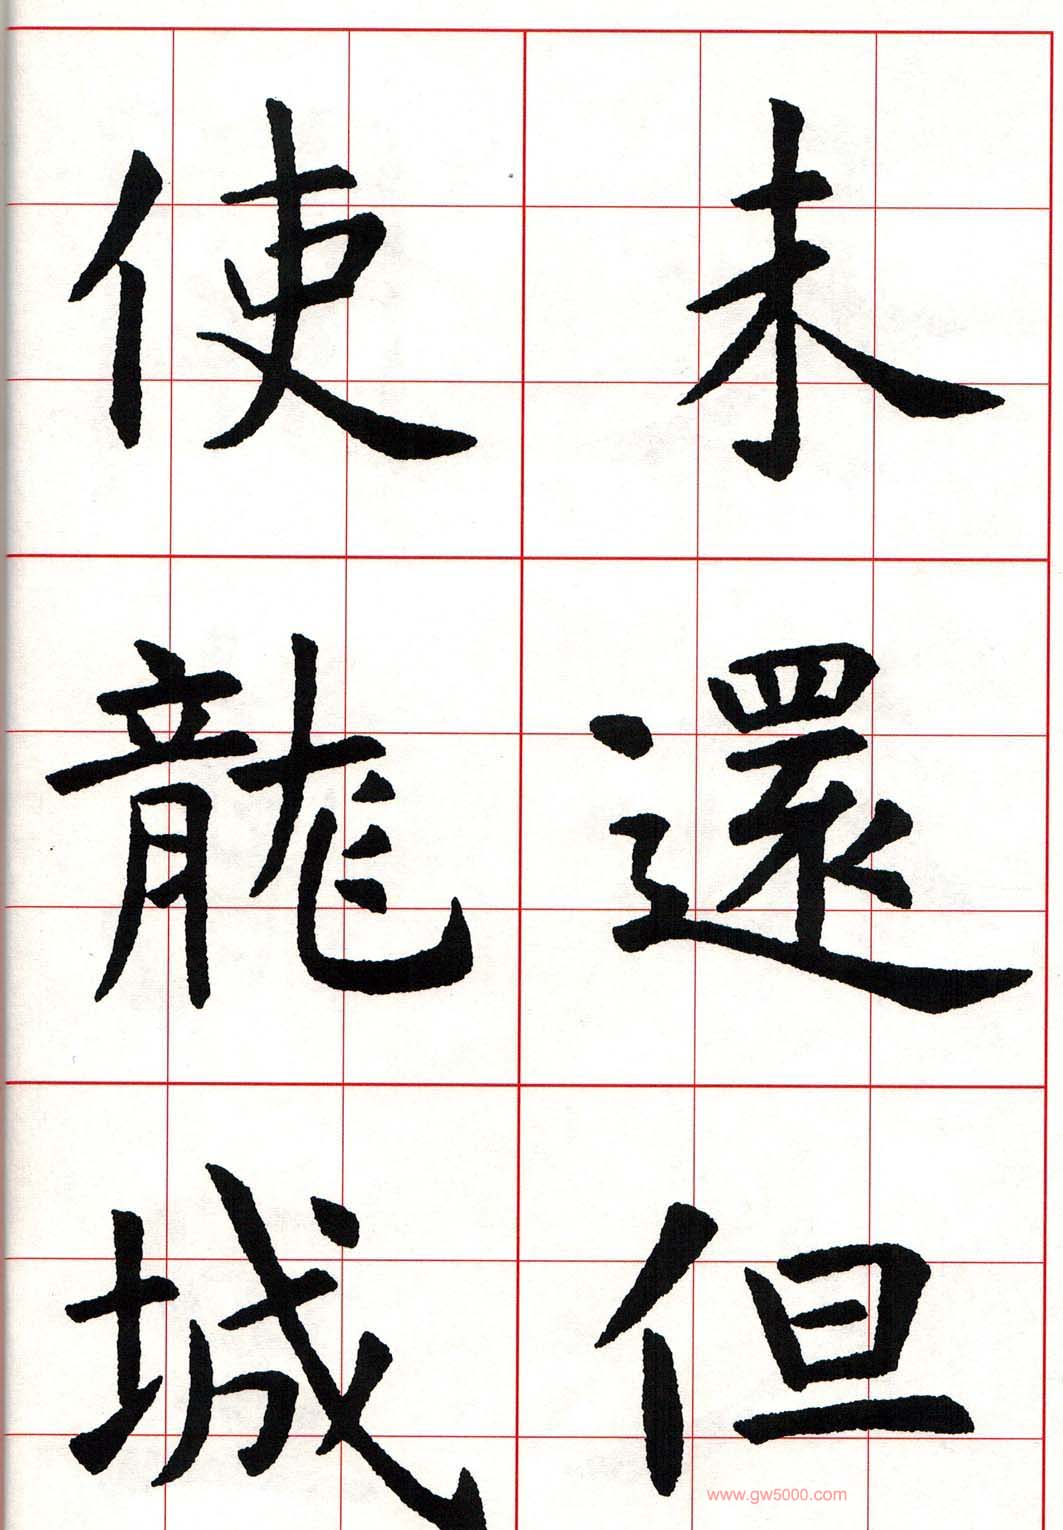 未還但
使龍城
www.gw5000.com